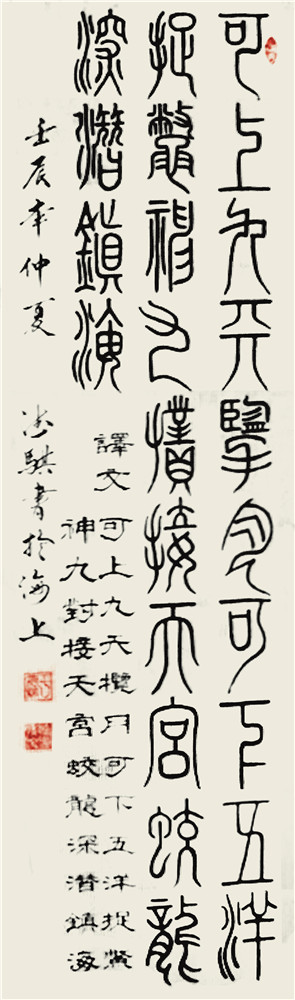 可上九天擥月可下五洋
捉鱉神九對接天宮蛟龍
深潛鎮海
譯文 可上九天攬月可下五洋捉鱉
神九對接天宮蛟龍深潛鎮海
壬辰年仲夏 騏書於海上